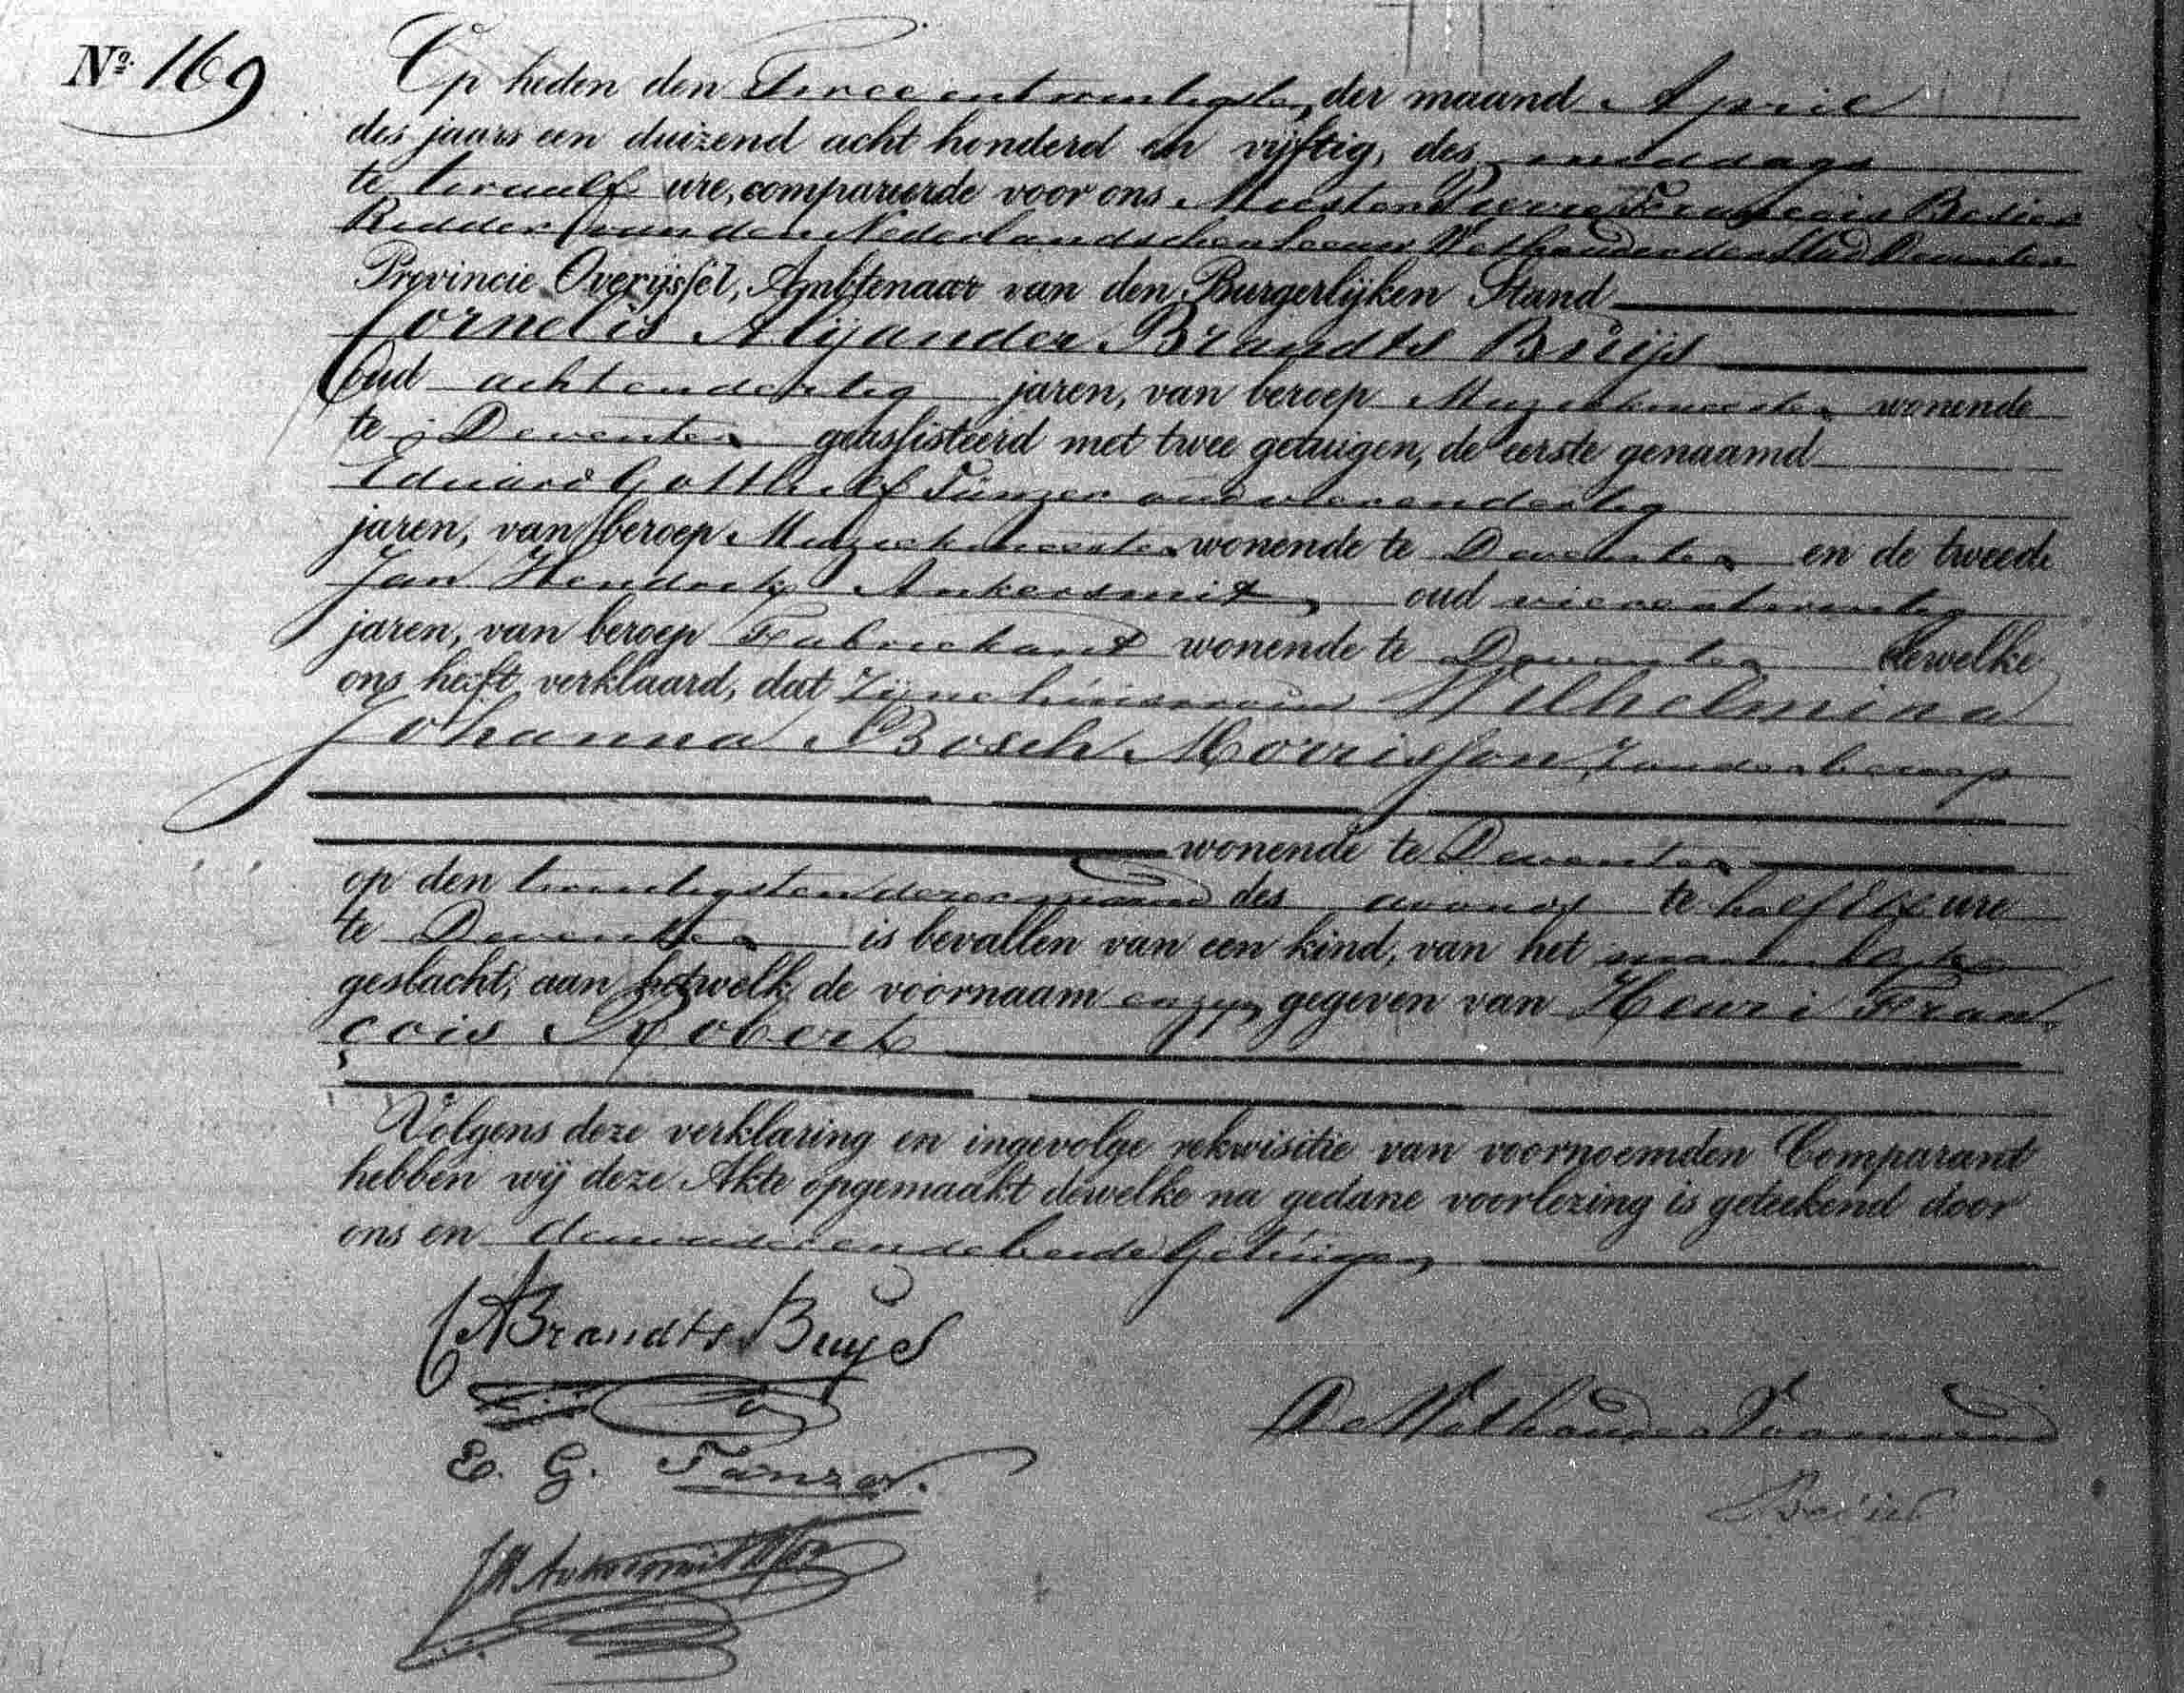 No. 169
Op heden den Twee entwintigsten der maand April
des jaars een duizend acht honderd en vijftig, des middags
te twaalf ure, compareerde voor ons Meester Pierre François Bedier
Ridder van den Nederlandschen Leeuw Wethouder der Stad Deventer
Provincie Overijssel, Ambtenaar van den Burgerlijken Stand
Cornelis Alijander Brandts Buijs
oud achtendertig jaren, van beroep Muziekmeester wonende
te Deventer geässisteerd met twee getuigen, de eerste genaamd
Eduard Gotthelf Tänzer oud vierendertig
jaren, van beroep Muziekmeester wonende te Deventer en de tweede
Jan Hendrik Ankersmit, oud vierentwintig
jaren, van beroep Fabriekant wonende te Deventer dewelke
ons heeft verklaard, dat Zijne huisvrouw Wilhelmina
Johanna Bosch Morrisson Zonder beroep
wonende te Deventer
op den twintigsten dezer maand des avonds te half Elf ure
te Deventer is bevallen van een kind, van het mannelijke
geslacht, aan hetwelk de voornaam en zijn gegeven van Henri Fran-
çois Robert
Volgens deze verklaring en ingevolge rekwisitie van voornoemden Comparant
hebben wij deze Akte opgemaakt dewelke na gedane voorlezing is geteekend door
ons en de beide Getuigen
CABrandts Buijs
De Wethouder Voornoemd
E. G. Tänzer.
JH Ankersmit